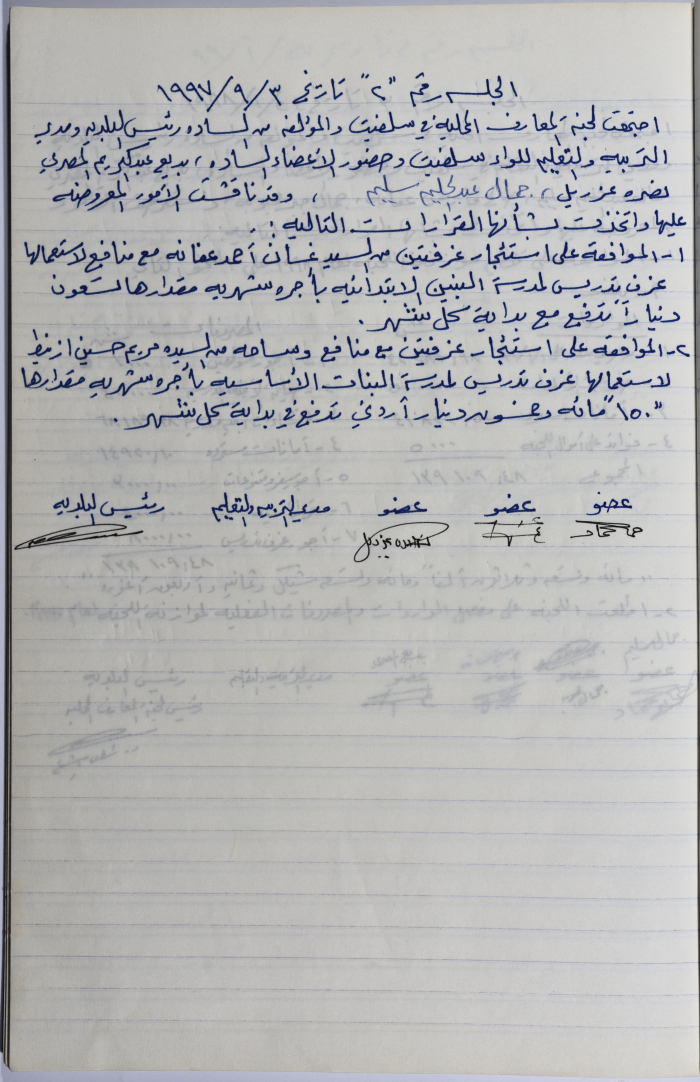 الجلسه رقم "٢" تاريخ ١٩٩٧/٩/٣
اجتمعت لجنة المعارف المحليه في سلفيت والمؤلفه من الساده رئيس البلديه ومدير
التربيه والتعليم للواء سلفيت وحضور الأعضاء الساده ، بديع عبدالكريم المصري
نصره عزريل ، جمال عبدالحليم سليم ، وقد ناقشت الأمور المعروضه
عليها واتخذت بشأنها القرارات التاليه :.
١- الموافقه على استئجار غرفتين من السيد غسان أحمد عفانه مع منافع لاستعمالها
غرف تدريس لمدرسة البنين الابتدائيه بأجره شهريه مقدارها تسعون
ديناراً تدفع مع بداية كل شهر .
٢- الموافقه على استئجار غرفتين مع منافع وساحه من السيده مريم حسين
لاستعمالها غرف تدريس لمدرسة البنات الأساسيه بأجره شهريه مقدارها
"١٥٠" مائه وخمسون دينار أردني تدفع في بداية كل شهر .
عضو عضو عضو مدير التربيه والتعليم رئيس البلديه